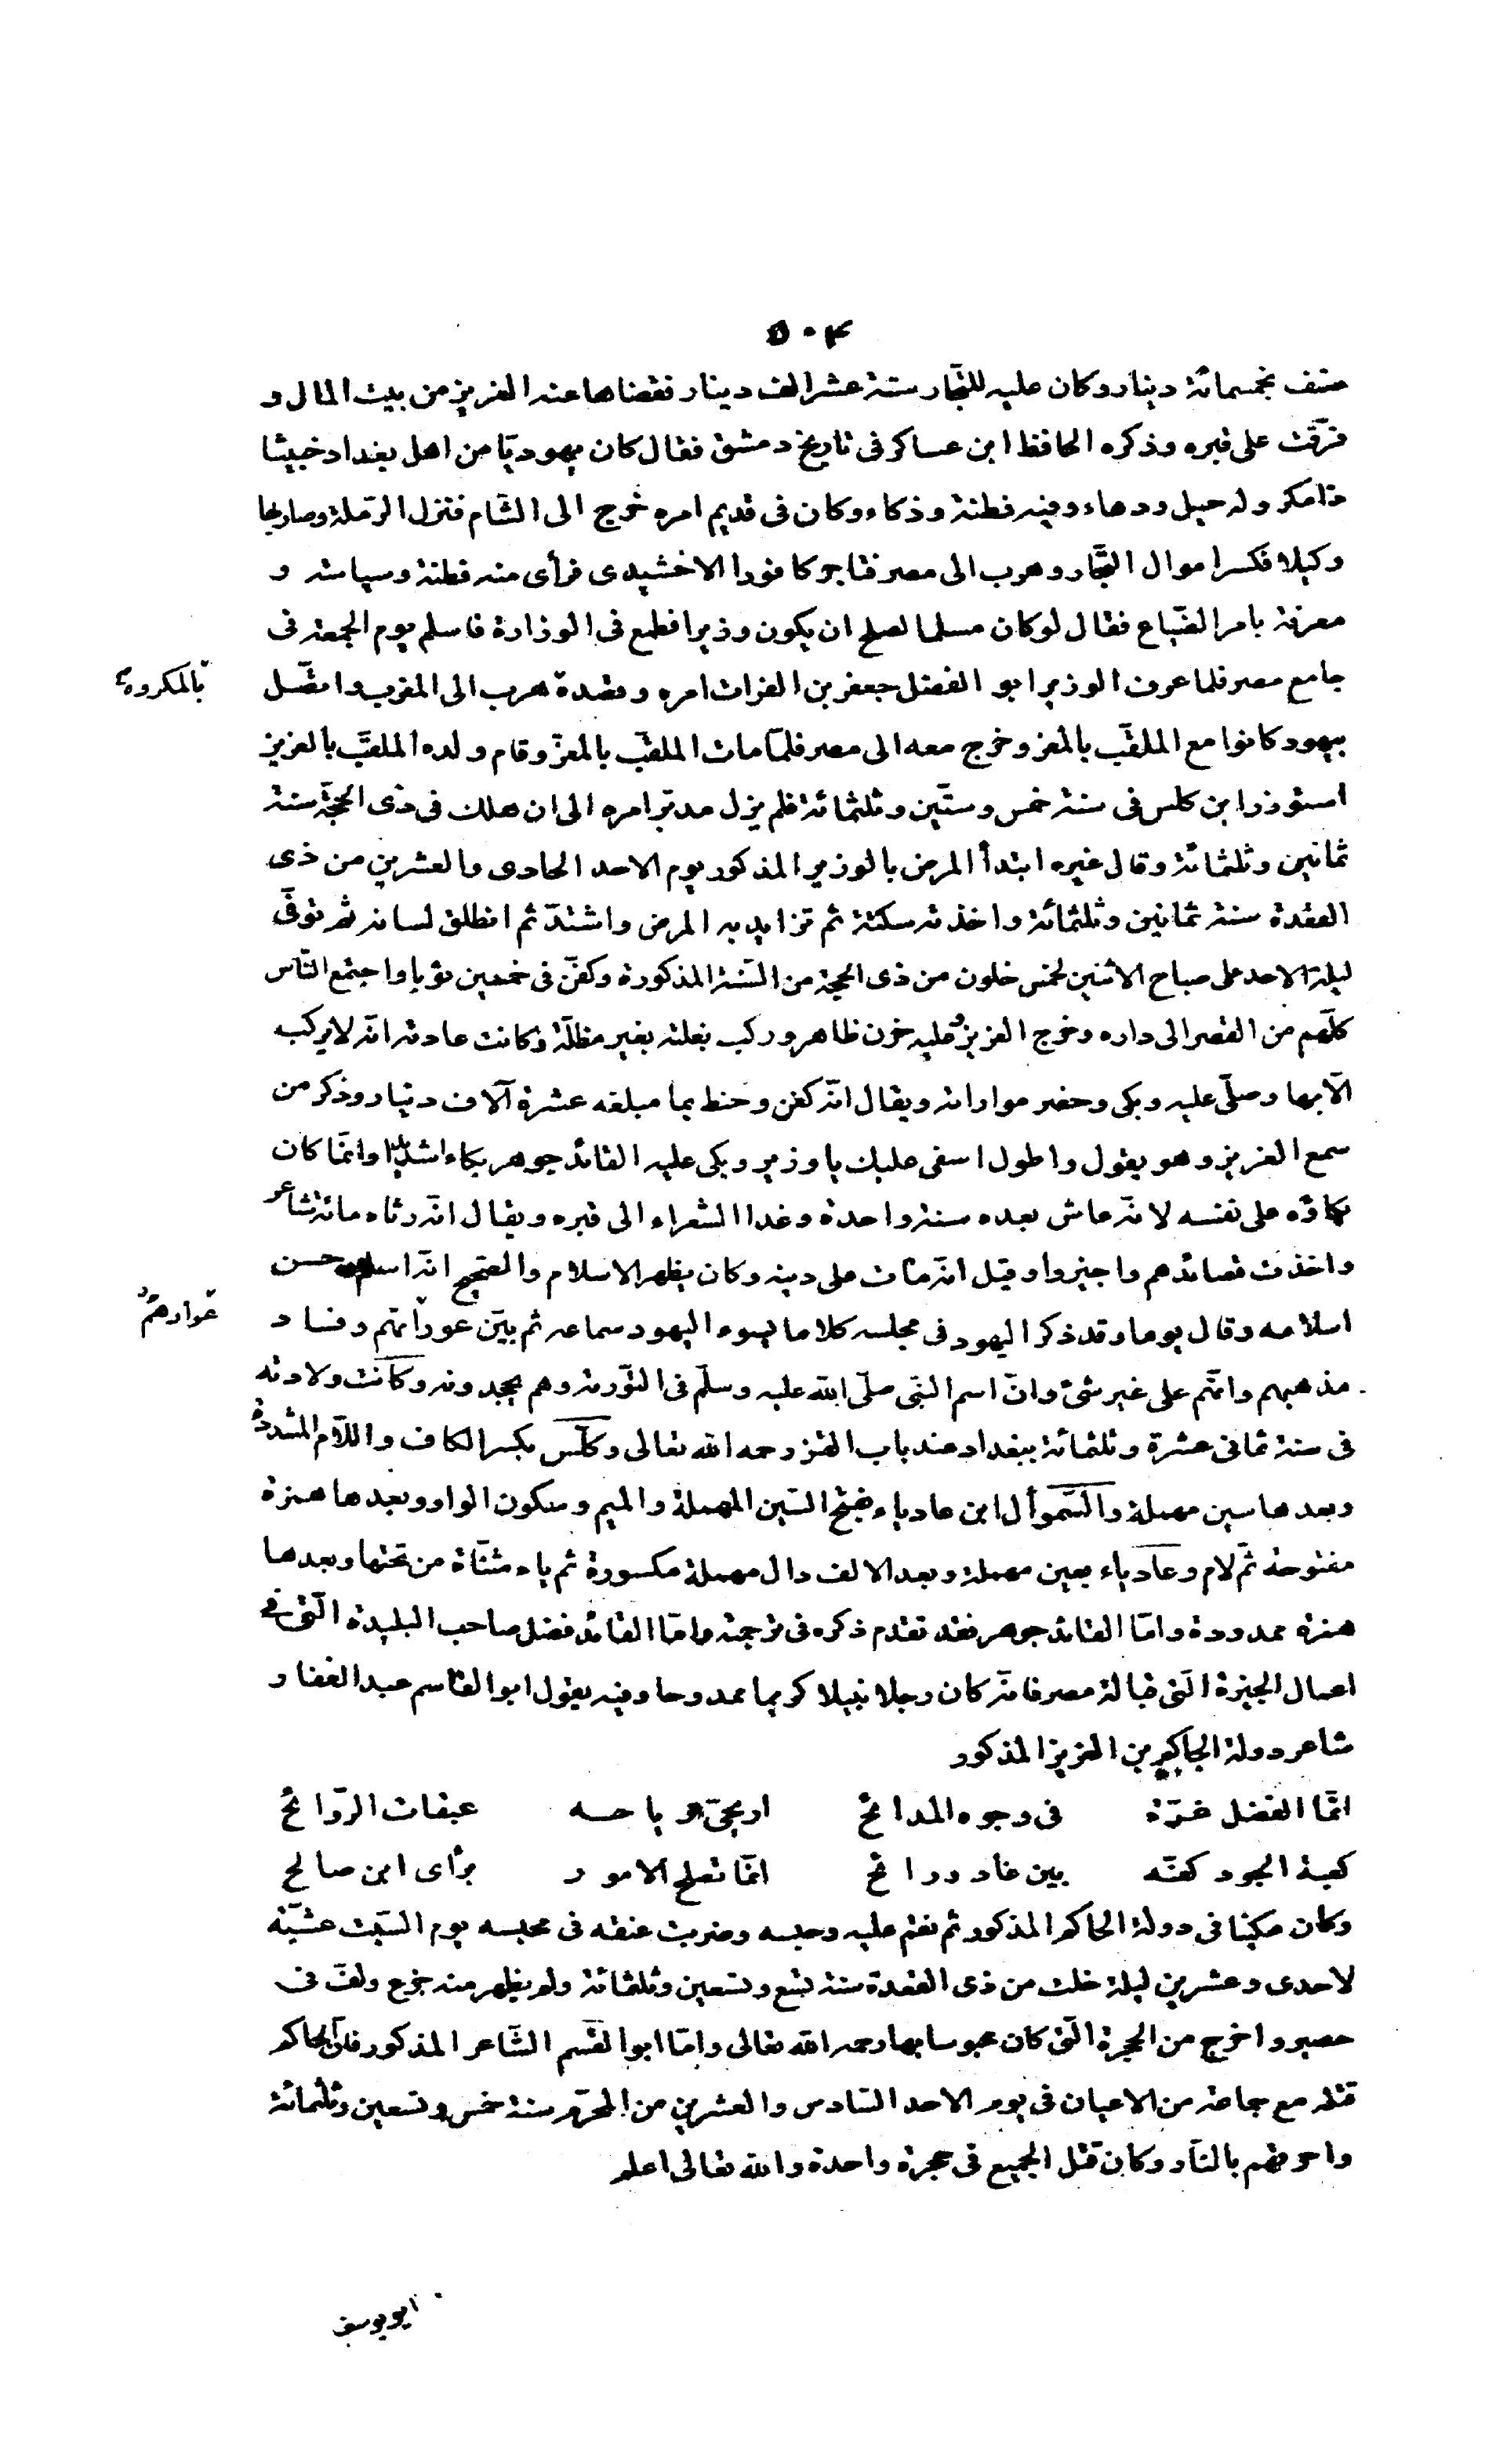 ٥٠٤
صنف بخمسمائة دينار وكان عليه للتجّار ستة عشر الف دينار فقضاها عنه العزيز من بيت المال و
فرّقت على قبره وذكره الحافظ ابن عساكر فى تاريخ دمشق فقال كان يهوديّا من اهل بغداد خبيثا
ذا مكر وله حيل ودهاء وفيه فطنة وذكاء وكان فى قديم امره خرج الى الشّام فنزل الرّملة وصار بها
وكيلا فكسر اموال التجّار وهرب الى مصر فتاجر كافورا الاخشيدى فرأى منه فطنة وسياسة و
معرفة بامر الضّياع فقال لو كان مسلما لصلح ان يكون وزيرا فطمع فى الوزارة فاسلم يوم الجمعة فى
جامع مصر فلما عرف الوزير ابو الفضل جعفر بن الفرات امره وقصدة هرب الى المغرب واتصّل
بالمكروه
بيهود كانوا مع الملقّب بالمعز وخرج معه الى مصر فلمّا مات الملقّب بالمعزّ وقام ولده الملقّب بالعزيز
استوزر ابن كلس فى سنة خمس وستّين وثلثمائة فلم يزل مدبّر امره الى ان هلك فى ذى الحجّة سنة
ثمانين وثلثمائة وقال غيره ابتدأ المرض بالوزير المذكور يوم الاحد الحادى والعشرين من ذى
القعدة سنة ثمانين وثلثمائة واخذته سكتة ثم تزايد به المرض واشتدّ ثم انطلق لسانه ثم توفّى
ليلة الاحد على صباح الاثنين لخمس خلون من ذى الحجّة من السّنة المذكورة وكفّن فى خمسين ثوبا واجتمع النّاس
كلّهم من القصر الى داره وخرج العزيز وعليه حزن ظاهر وركب بغلته بغير مظلّة وكانت عادته انّه لا يركب
الّا بها وصلّى عليه وبكى وحضر مواراته ويقال انّه كفن وحنط بما مبلغه عشرة آلاف دينار وذكر من
سمع العزيز وهو يقول واطول اسفى عليك يا وزير وبكى عليه القائد جوهر بكاء شديدا وانّما كان
بكاؤه على نفسه لانّه عاش بعده سنة واحدة وغدا الشعراء الى قبره ويقال انّه رثاه مائة شاعر
واخذت قصائدهم واجيزوا وقيل انّه مات على دينه وكان يظهر الاسلام والصّحيح انّه اسلم وحسن
اسلامه وقال يوما وقد ذكر اليهود فى مجلسه كلاما يسوء اليهود سماعه ثم بيّن عوراتهم وفساد
عوارهم
مذهبهم وانّهم على غير شئ وانّ اسم النّبى صلّى الله عليه وسلّم فى التّورية وهم يجحدونه وكانت ولادته
فى سنة ثمانى عشرة وثلثمائة ببغداد عند باب القز رحمه الله تعالى وكلّس بكسر الكاف واللّام المشددة
وبعدها سين مهملة والسّموأل ابن عادياء بفتح السّين المهملة والميم وسكون الواو وبعدها همزة
مفتوحة ثمّ لام وعادياء بعين مهملة وبعد الالف دال مهملة مكسورة ثم ياء مثنّاة من تحتها وبعدها
همزة ممدودة وامّا القائد جوهر فقد تقدم ذكره فى ترجمة وامّا القائد فضل صاحب البليدة الّتى فى
اعمال الجيزة الّتى قبالة مصر فانّه كان رجلا نبيلا كريما ممدوحا وفيه يقول ابو القاسم عبد الغفار
شاعر دولة الحاكم بن العزيز المذكور
انّما الفضل غرّة فى وجوه المدائح اريحىّ رياحه عبقات الروّائح
كعبة الجود كفّه بين غاد ورائح انّما تصلح الامور برأى ابن صالح
وكان مكينا فى دولة الحاكم المذكور ثم نقم عليه وحبسه وضربت عنقه فى محبسه يوم السّبت عشيّة
لاحدى وعشرين ليلة خلت من ذى القعدة سنة تسع وتسعين وثلثمائة ولم يظهر منه جزع ولفّ فى
حصير واخرج من الحجرة الّتى كان محبوسا بها رحمه الله تعالى وامّا ابو القسم الشّاعر المذكور فان الحاكم
قتله مع جماعة من الاعيان فى يوم الاحد السّادس والعشرين من المحرّم سنة خمس وتسعين وثلثمائة
واحرقهم بالنّار وكان قتل الجميع فى حجرة واحدة والله تعالى اعلم
ابو يوسف